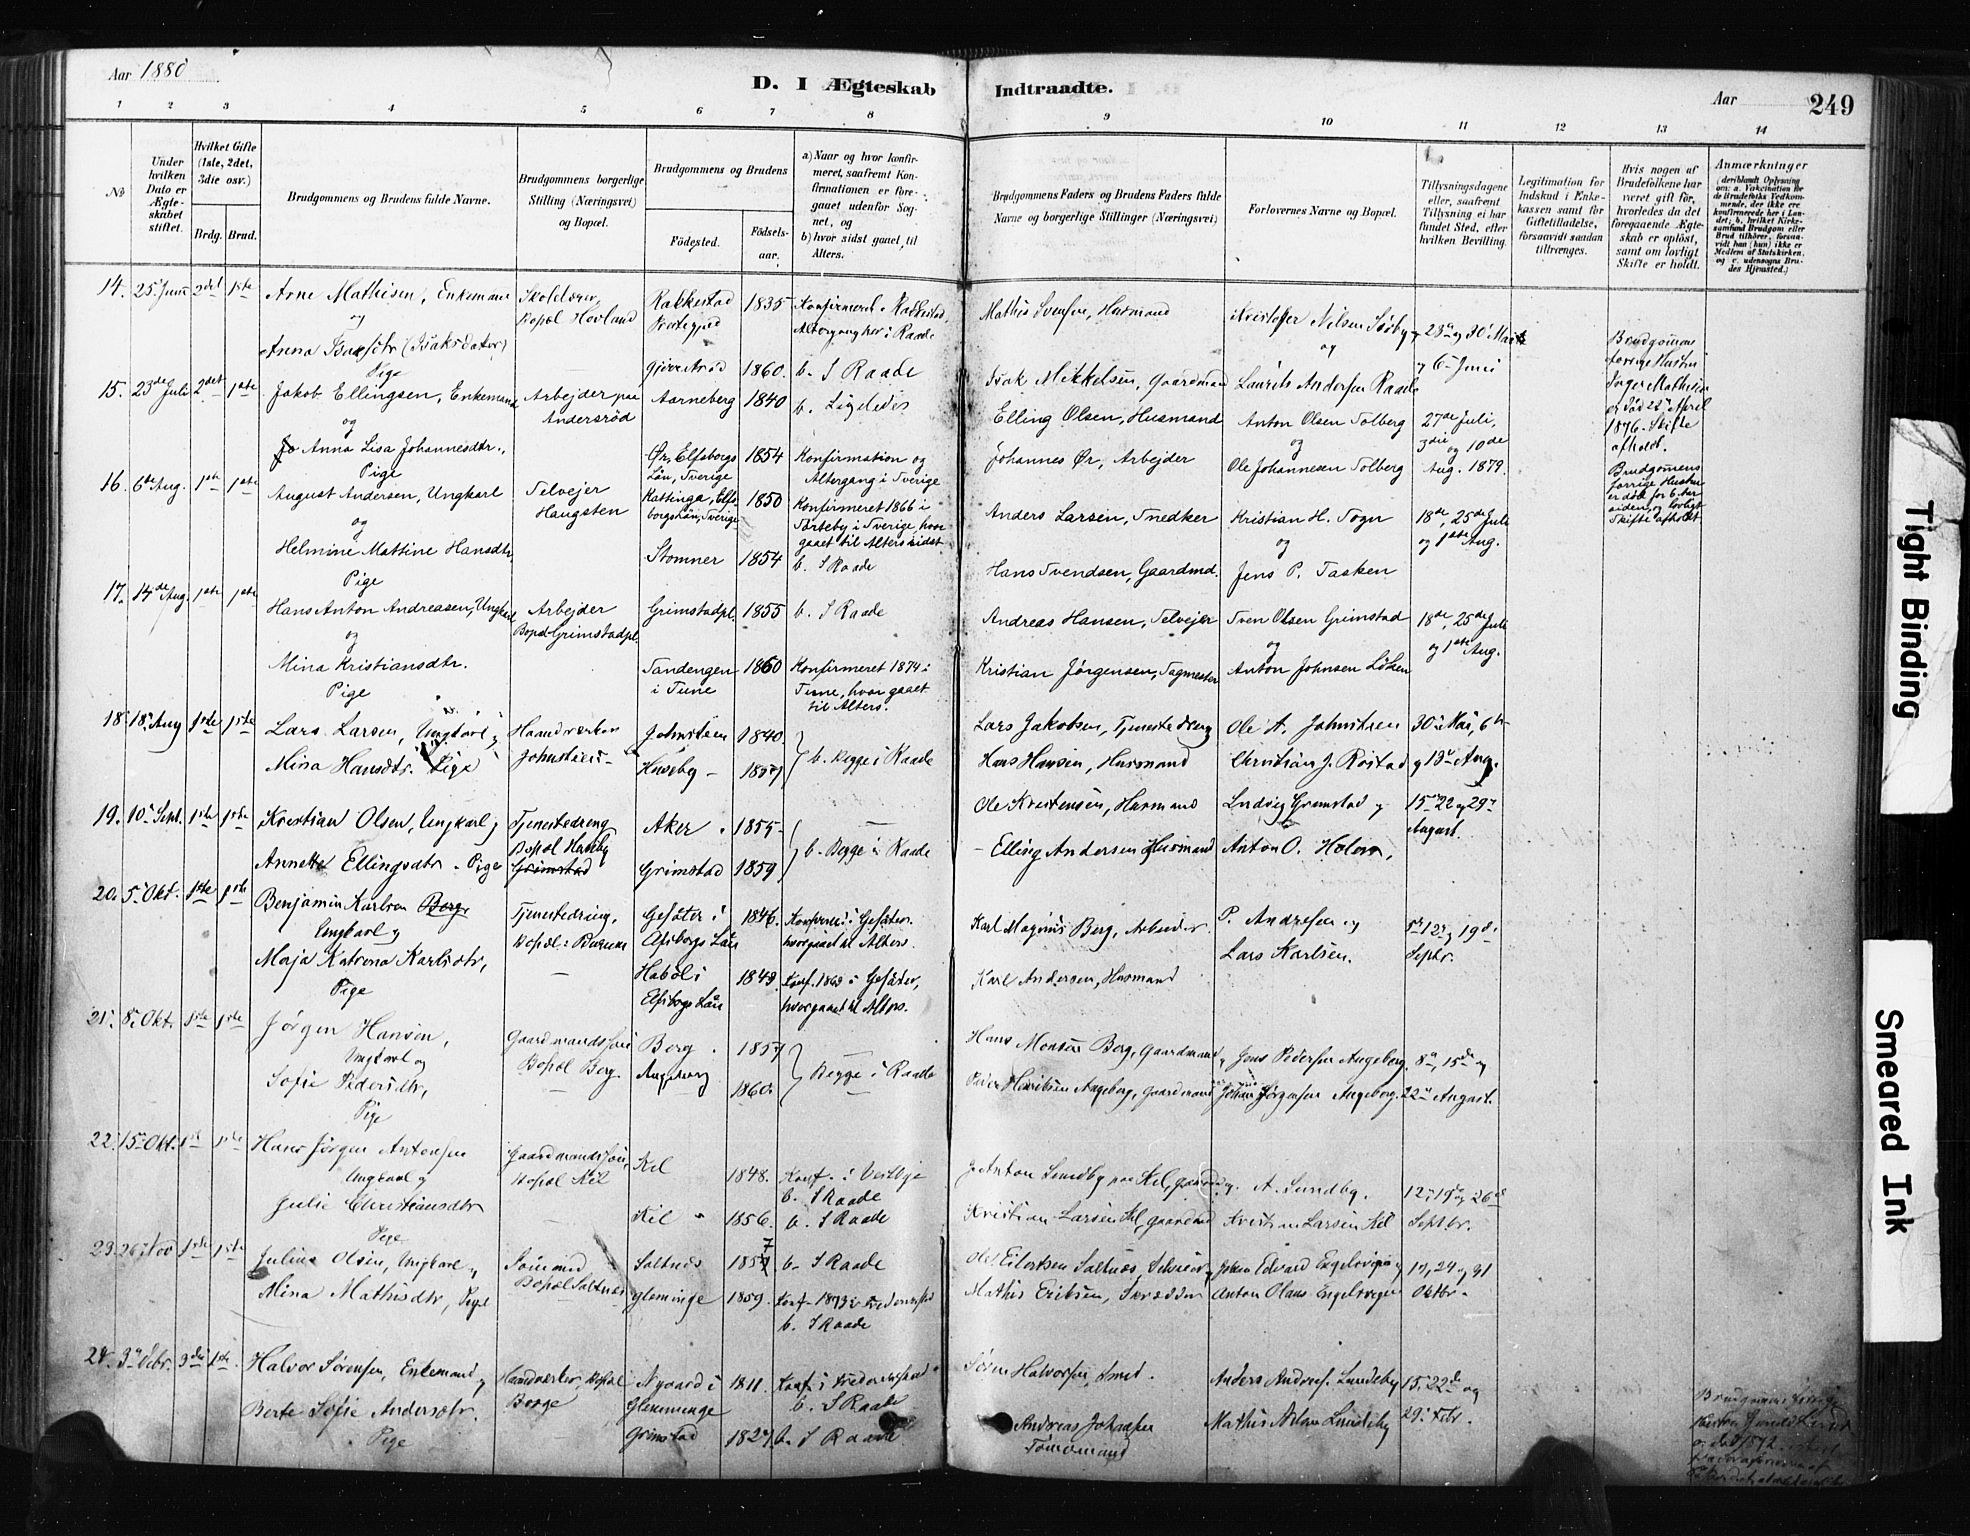 Aar 1880
D. I Ægteskab Indtraadte.
Aar 249
1 2 3 4 5 6 7 8 9 10 11 12 13 14
No
Under hvilken Dato er Ægteskabet stiftet.
Hvilket Gifte (1ste, 2det, 3die osv.)
Brdg. Brud.
Brudgommens og Brudens fulde Navne.
Brudgommens borgerlige Stilling (Næringsvei) og Bopæl.
Brudgommens og Brudens
Fødested. Fødselsaar.
a) Naar og hvor konfirmeret, saafremt Konfirmationen er foregaaet udenfor Sognet, og
b) hvor sidst gaaet til Alters.
Brudgommens Faders og Brudens Faders fulde Navne og borgerlige Stillinger (Næringsvei)
Forlovernes Navne og Bopæl.
Tillysningsdagene eller, saafremt Tillysning ei har fundet Sted, efter hvilken Bevilling.
Legitimation for Indskud i Enkekassen samt for Giftetilladelse, forsaavidt saadan tiltrænges.
Hvis nogen af Brudefolkene har været gift før, hvorledes da det foregaaende Ægteskab er opløst, samt om lovligt Skifte er holdt.
Anmærkninger
14. 25 Juni 2det 1ste Arne Mathisen, Enkemand
og
Anna Isaksdtr (Isaksdatter)
Pige
Bopæl Hovland
Rakkestad
1835
Konfirmeret i Rakkestad, Altergang her i Raade
1860. b. I Raade
Mathis Svensen, Husmand
Isak Mikkelsen, Gaardmand
Kristoffer Nilsen
og
Laurits Andersen Raade
23de og 30 Mai
og 6 Juni
Brudgommens forrige Hustru
død 22de April 1876. Skifte afholdt.
15. 23de Juli 2det 1ste Jakob Ellingsen, Enkemand
og
Anna Lisa Johannesdtr.,
Pige
Arbejder paa Andersrød
Aarneberg 1840 b. Ligeledes
Ør, Elfsborgs Län, Sverige 1854 Konfirmation og Altergang i Sverige
Elling Olsen, Husmand
Johannes Ør, Arbejder
Anton Olsen Tolberg
og
Ole Johannesen Tolberg
27de Juli, 3die og 10de Aug. 1879.
Brudgommens forrige Hustru er død for 6 Aar siden, og lovligt Skifte afholdt
16. 6te Aug. 1ste 1ste August Andersen, Ungkarl
og
Helmine Mattine Hansdtr,
Pige
Selvejer Haugsten
Kattinga, Elfsborgs Län, Sverige 1850
Konfirmeret 1866 i Tarteby i Sverige, hvor gaaet til Alters sidst
Stomner 1854 b. I Raade
Anders Larsen, Snedker
Hans Svendsen, Gaardmd.
Kristian H. Sogn
og
Jens P. Tasken
18de, 25de Juli og 1ste Aug.
17. 14de Aug. 1ste 1ste Hans Anton Andreasen, Ungkarl
og
Mina Kristiansdtr.
Pige
Arbejder
Bopæl Grimstadpl.
Grimstadpl. 1855 b. I Raade
Sandengen i Tune 1860 Konfirmeret 1874 i Tune, hvor gaaet til Alters.
Andreas Hansen, Selvejer
Kristian Jørgensen, Sagmester
Sven Olsen Grimstad
og
Anton Johnsen Løken
18de, 25de Juli
og 1ste Aug.
18. 18 Aug 1ste 1ste Lars Larsen, Ungkarl og
Mina Hansdtr. Pige
Haandværker
Johnstien 1840.
Huseby 1857
b. Begge i Raade
Lars Jakobsen, Tjenestedreng
Hans Hansen, Husmand
Ole A. Johnstien
Christian J. Røstad
30te Mai, 6te
og 13de Aug.
19. 10 Sept. 1ste 1ste Kristian Olsen, Ungkarl og
Annette Ellingsdtr. Pige
Tjenestedreng
Bopæl Huseby
Grimstad
Aker 1855
Grimstad 1859
b. Begge i Raade
Ole Kristensen, Husmand
Elling Andersen Husmand
Ludvig Grimstad og
Anton O. Holen.
15de 22 og 29de August.
20. 5 Okt. 1ste 1ste Benjamin Karlsen Berg
Ungkarl og
Maja Katrina Karlsdtr,
Pige
Tjenestedreng,
Gesäter i Elfsborgs Län 1846. Konfirm. i Gesäter. hvor gaaet til Alters.
Habol i Elfsborgs Län 1843. Konf. 1863 i Gesäter, hvor gaaet til Alters.
Karl Magnus Berg, Arbeider
Karl Andersen, Husmand
P. Andresen og
Lars Karlsen.
5te 12te og 19de Septbr.
21. 8. Okt. 1ste 1ste Jørgen Hansen,
Ungkarl og
Sofie Pedersdtr,
Pige
Gaardmandssøn
Bopæl Berg
Berg 1857
Augeberg 1860.
Begge i Raade
Hans Monsen Berg, Gaardmand
Peder Henriksen Augeberg, Gaardmand
Jens Pedersen Augeberg
Johan Jørgensen Augeberg.
8de, 15de og
22de August.
22. 15 Okt. 1ste 1ste Hans Jørgen Antonsen
Ungkarl og
Julie Christiansdtr
Pige
Gaardmandssøn,
Bopæl Kil
Kil 1848. Konf. i Vestby
b. I Raade
Kil 1856. b. I Raade
Anton Sundby paa Kil, gaardmd.
Kristian Larsen Kil, gaardmd
A. Sundby.
Kristian Larsen Kil
12, 19 og 26de Septbr.
23. 26 Nov 1ste 1ste Julius Olsen, Ungkarl og
Mina Mathisdtr, Pige
Sømand
Bopæl Saltnes
Saltnes 1857 b. I Raade
Gleminge 1859. Konf. 1873 i Frederiksstad
b. I Raade
Ole Eilertsen Saltnes, Selveier
Mathis Eriksen, Skrædder
Johan Edvard Engelsvigen og
Anton Olaus Engelsvigen
17, 24 og 31 Oktbr.
24. 3 Debr. 3die 1ste Halvor Sørensen, Enkemand og
Berte Sofie Andersdtr.
Pige
Haandverker, Bopæl
Borge
Nygaard i Glemminge 1811. Konf. i Frederiksstad
b. I Raade
Grimstad 1827. b. I Raade
Søren Halvorsen, Smed.
Andreas Johnsen
Tømmermand
Anders Andres. Lundeby
Mathis Nilsen Lundeby
15, 22de og
29. Febr.
Tight Binding
Smeared Ink